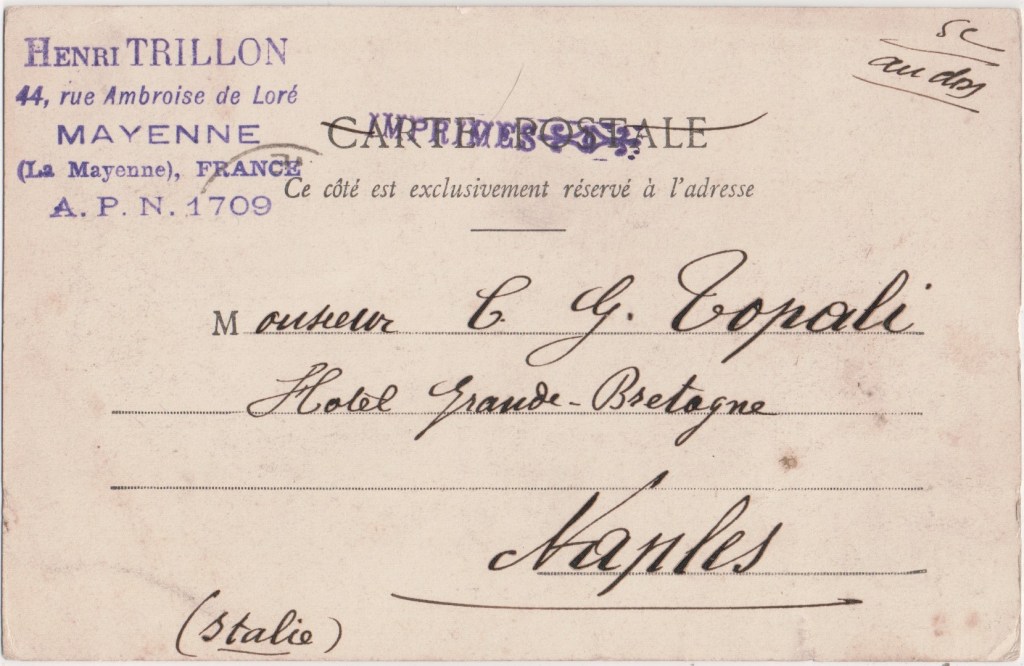 HENRI TRILLON
44, rue Ambroise de Loré
MAYENNE
(La Mayenne), FRANCE
A. P. N. 1709
5c
au dos
CARTE POSTALE
IMPRIMES
Ce côté est exclusivement réservé à l'adresse
Monsieur C. G. Topali
Hotel Grande-Bretagne
Naples
(Italie)